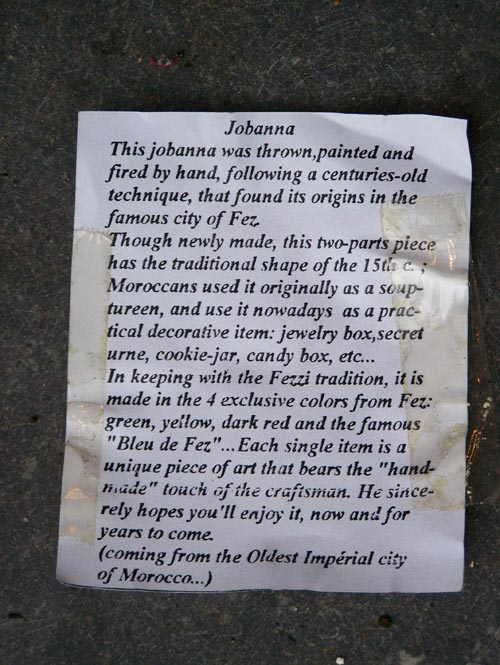 Jobanna
This jobanna was thrown,painted and
fired by hand, following a centuries-old
technique, that found its origins in the
famous city of Fez.
Though newly made, this two-parts piece
has the traditional shape of the 15th c. ;
Moroccans used it originally as a soup-
tureen, and use it nowadays as a prac-
tical decorative item: jewelry box,secret
urne, cookie-jar, candy box, etc...
In keeping with the Fezzi tradition, it is
made in the 4 exclusive colors from Fez:
green, yellow, dark red and the famous
"Bleu de Fez"...Each single item is a
unique piece of art that bears the "hand-
made" touch of the craftsman. He since-
rely hopes you'll enjoy it, now and for
years to come.
(coming from the Oldest Impérial city
of Morocco...)